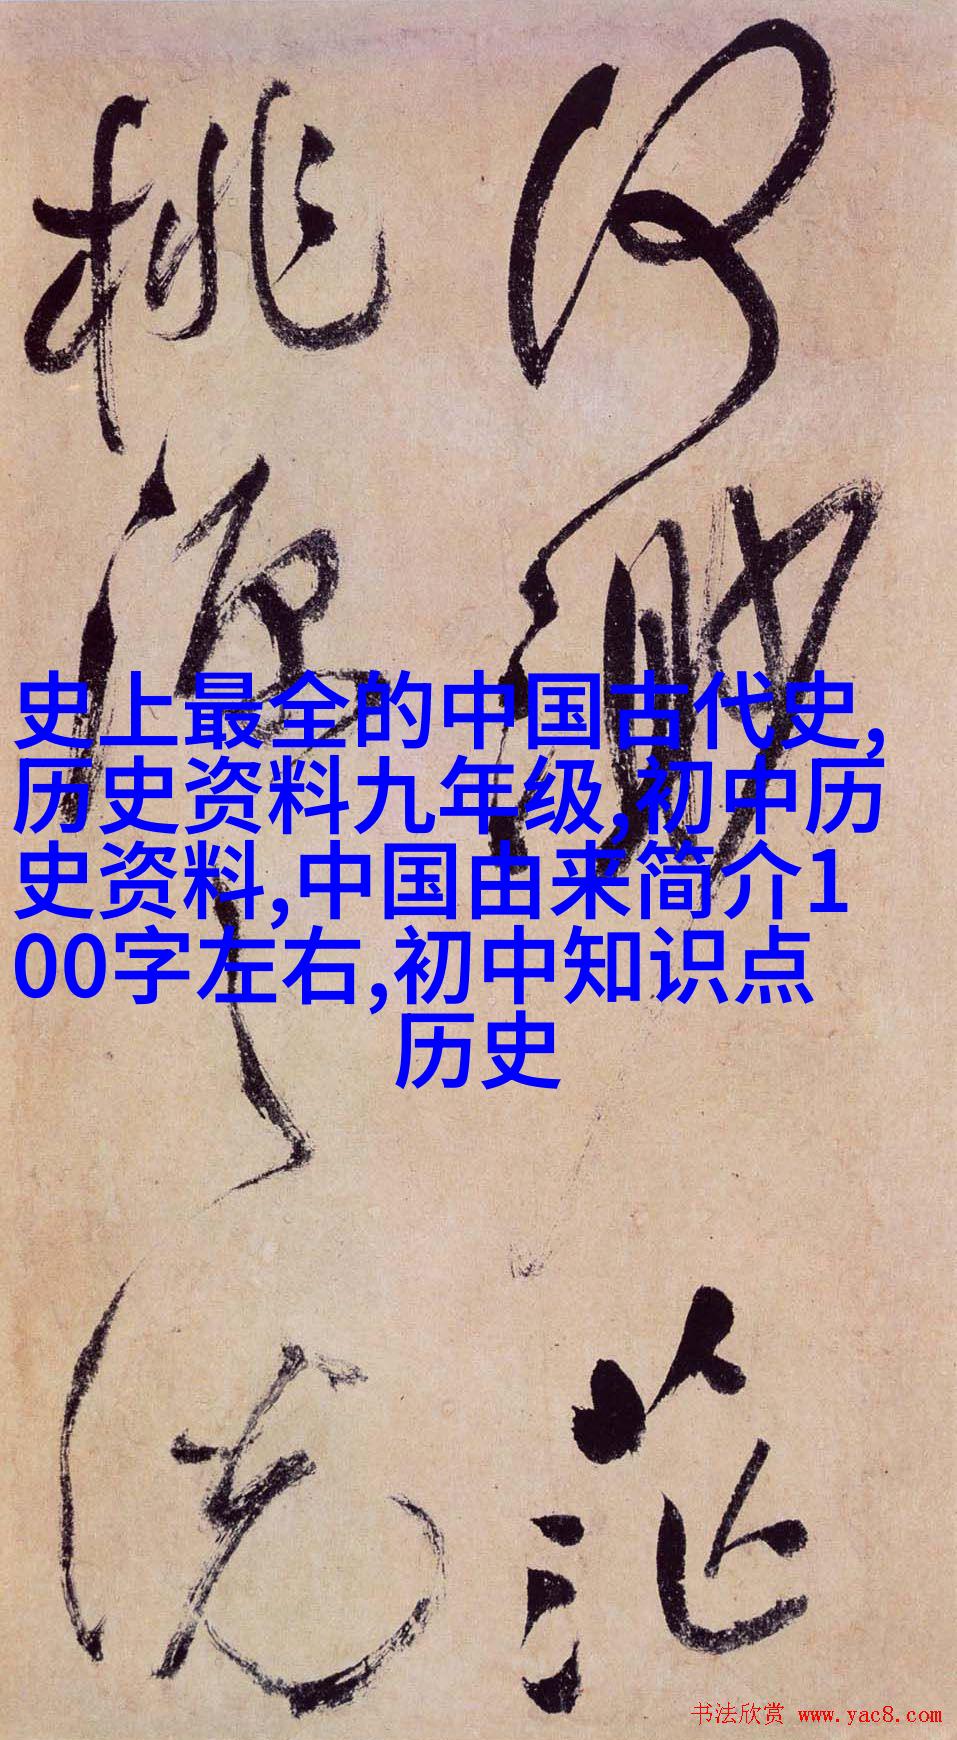 何渺茫
桃源之說
史上最全的中国古代史,
历史资料九年级,初中历
史资料,中国由来简介1
00字左右,初中知识点
历史
书法欣赏 www.yac8.com